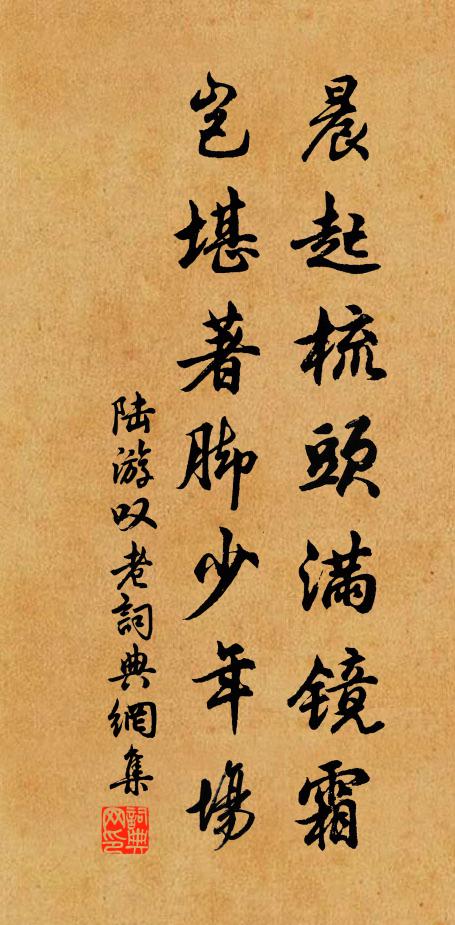 晨起梳頭滿鏡霜
岂堪著脚少年場
陆游叹老詞典網集
詞典网印